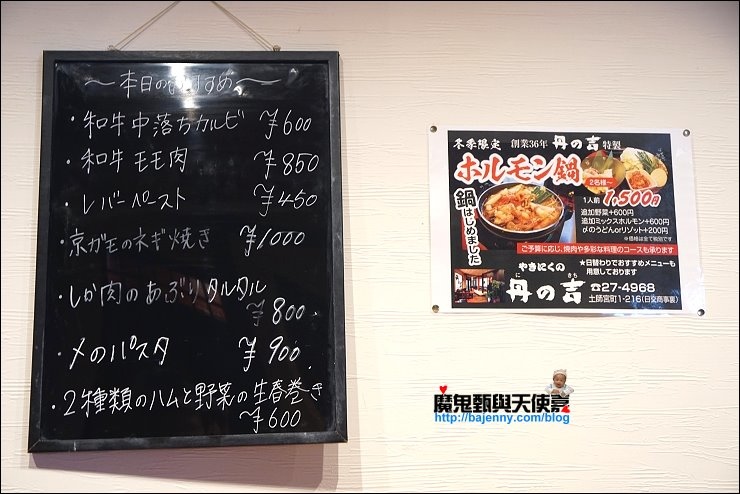 ～本日のおすすめ～
・和牛中落ちカルビ ¥600
・和牛モモ肉 ¥850
・レバーペースト ¥450
・京ガモのネギ焼き ¥1000
・しか肉のあぶりタルタル
¥800.
・〆のパスタ ¥900.
・2種類のハムと野菜の生春巻き
¥600
冬季限定 創業36年 丹の吉 特製
ホルモン鍋
鍋はじめました
2名様～
1人前 1,500円
追加野菜+600円
追加ミックスホルモン+600円
〆のうどんorリゾット+200円
※価格は全て税別です
ご予算に応じ、焼肉や多彩な料理のコースも承ります
やきにくの
丹の吉
に きち
★日替わりでおすすめメニューも
用意しております
☎27-4968
土師宮町1-216(日交商事裏)
魔鬼甄與天使嘉
http://bajenny.com/blog